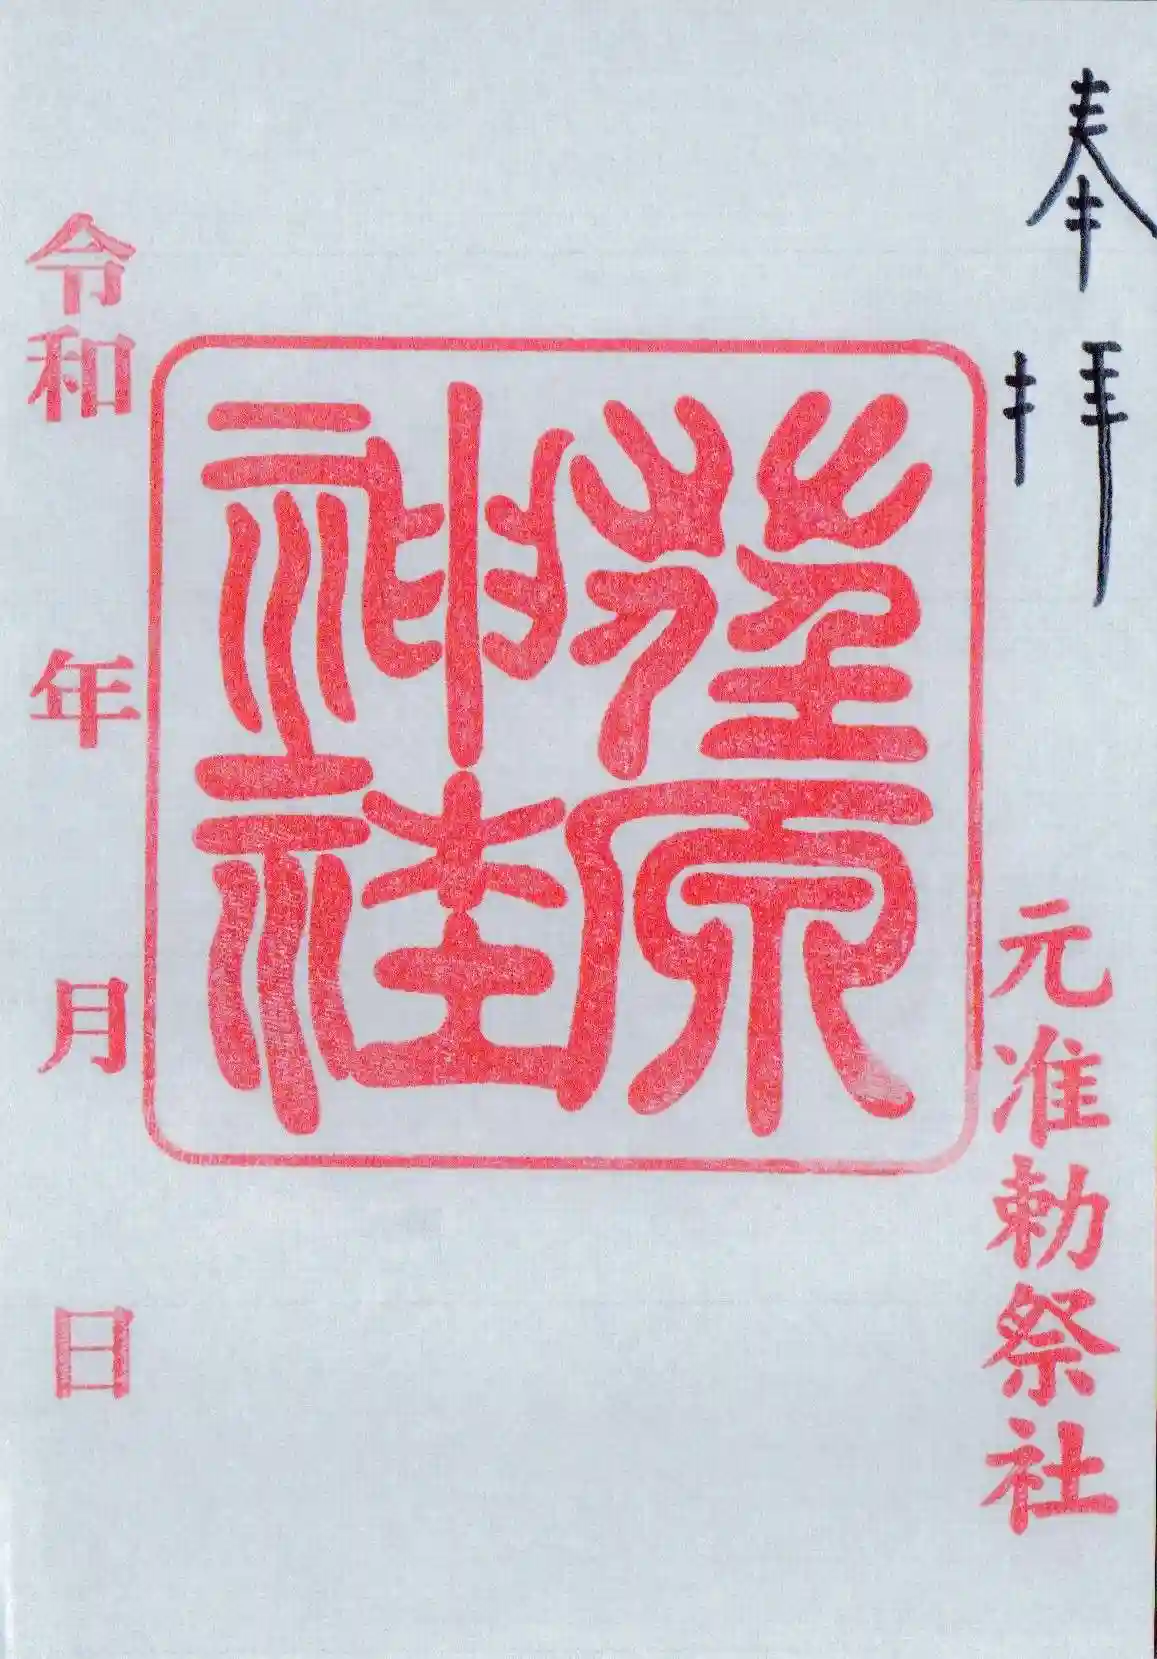 奉拝
元准勅祭社
荏原
神社
令和 年 月 日